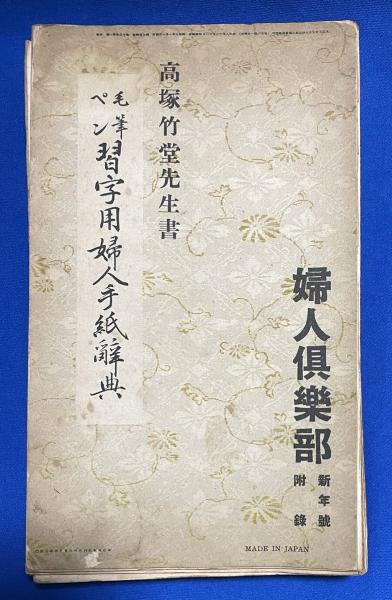 婦人倶樂部
新年號
附錄
高塚竹堂先生書
毛筆
ペン
習字用婦人手紙辭典
MADE IN JAPAN